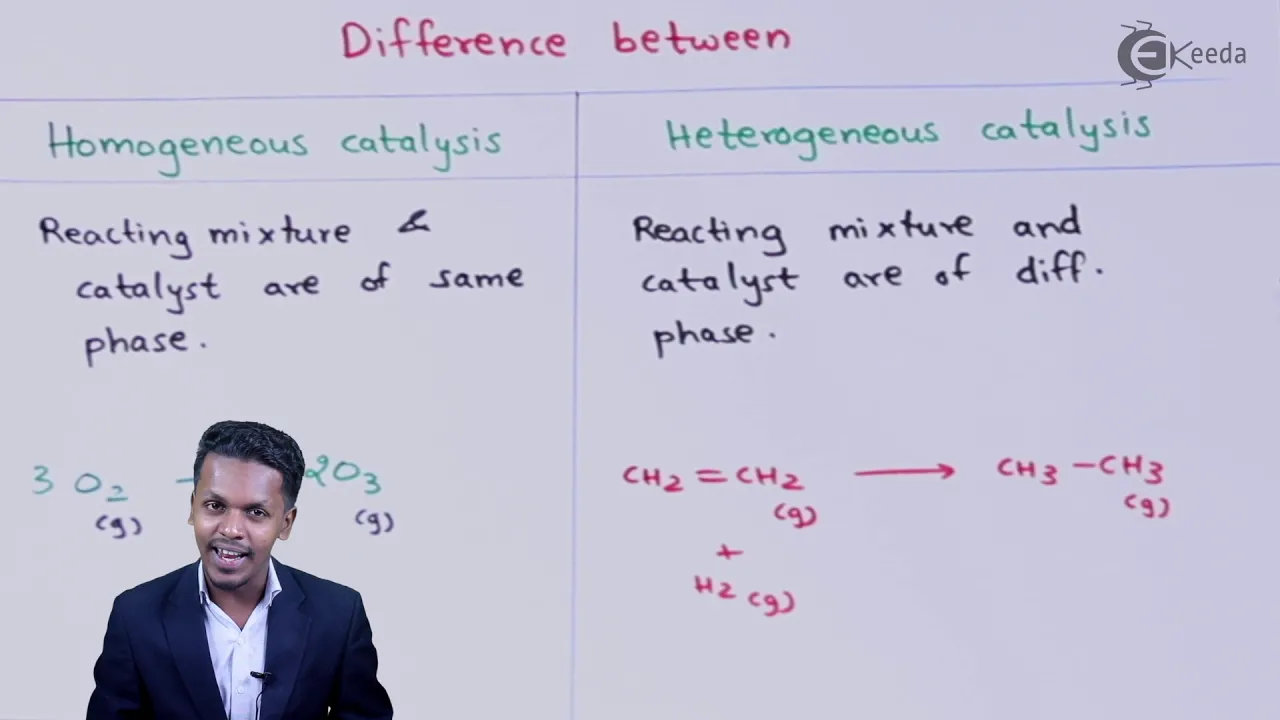 Difference between
Keeda
Homogeneous catalysis
Heterogeneous catalysis
Reacting mixture &
catalyst are of same
phase.
Reacting mixture and
catalyst are of diff.
phase.
3 O2 → 2O3
(g) (g)
CH2 = CH2 → CH3 – CH3
(g) (g)
+
H2 (g)